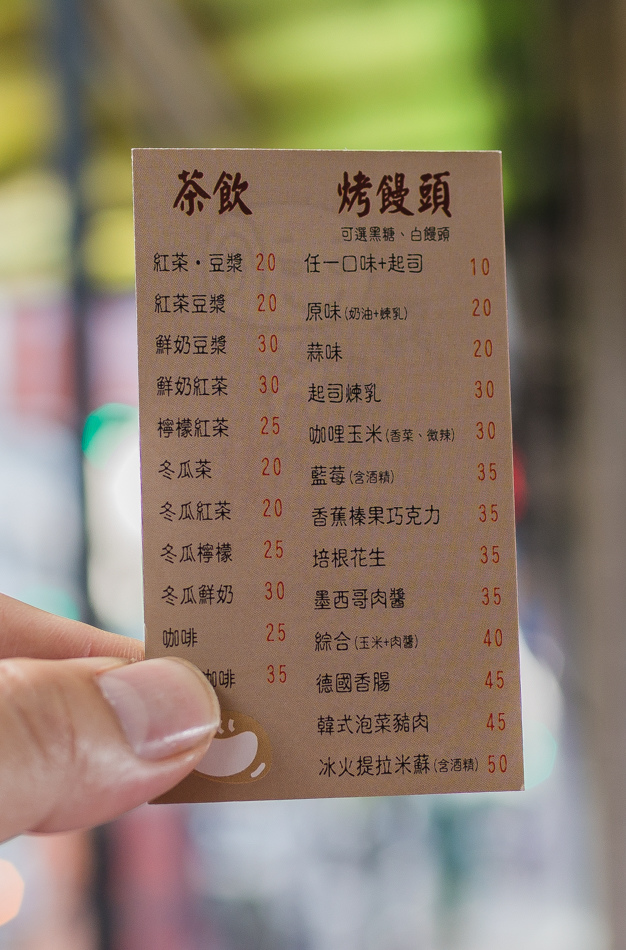 茶飲
紅茶・豆漿 20
紅茶豆漿 20
鮮奶豆漿 30
鮮奶紅茶 30
檸檬紅茶 25
冬瓜茶 20
冬瓜紅茶 20
冬瓜檸檬 25
冬瓜鮮奶 30
咖啡 25
咖啡 35
烤饅頭
可選黑糖、白饅頭
任一口味+起司 10
原味(奶油+煉乳) 20
蒜味 20
起司煉乳 30
咖哩玉米(香菜、微辣) 30
藍莓(含酒精) 35
香蕉榛果巧克力 35
培根花生 35
墨西哥肉醬 35
綜合(玉米+肉醬) 40
德國香腸 45
韓式泡菜豬肉 45
冰火提拉米蘇(含酒精) 50